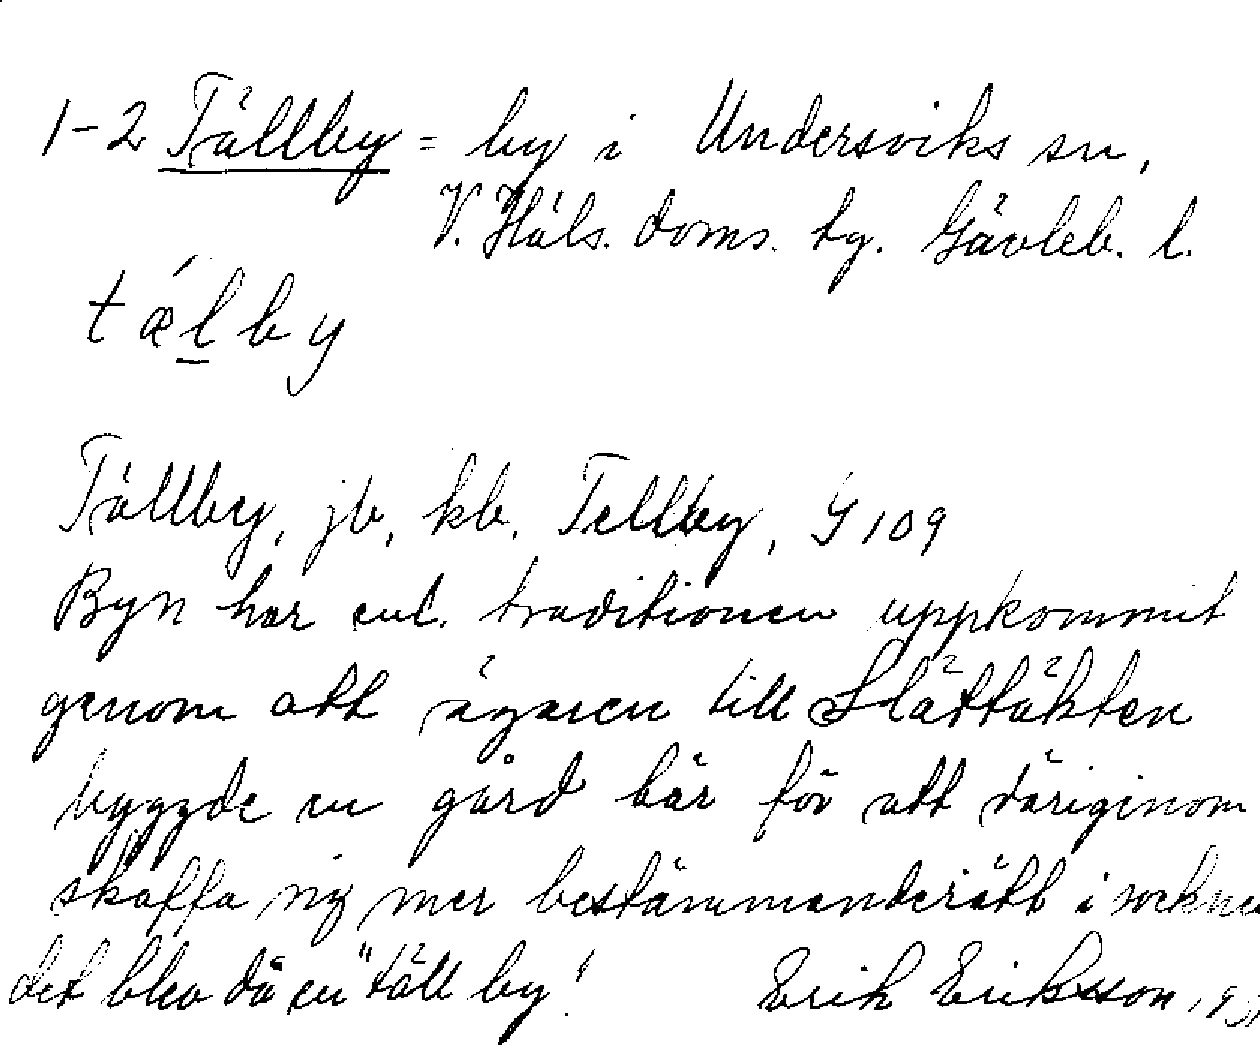 1-2 Tällby = by i Undersviks sn,
V. Häls. doms. tg. Gävleb. l.
tǽlby
Tällby, jb, kb, Tellby, G 109
Byn har enl. traditionen uppkommit
genom att ägaren till Slättäkten
byggde en gård här för att däriginom
skaffa sig mer bestämmanderätt i socknen
det blev då en "täll by!
Erik Eriksson, 193